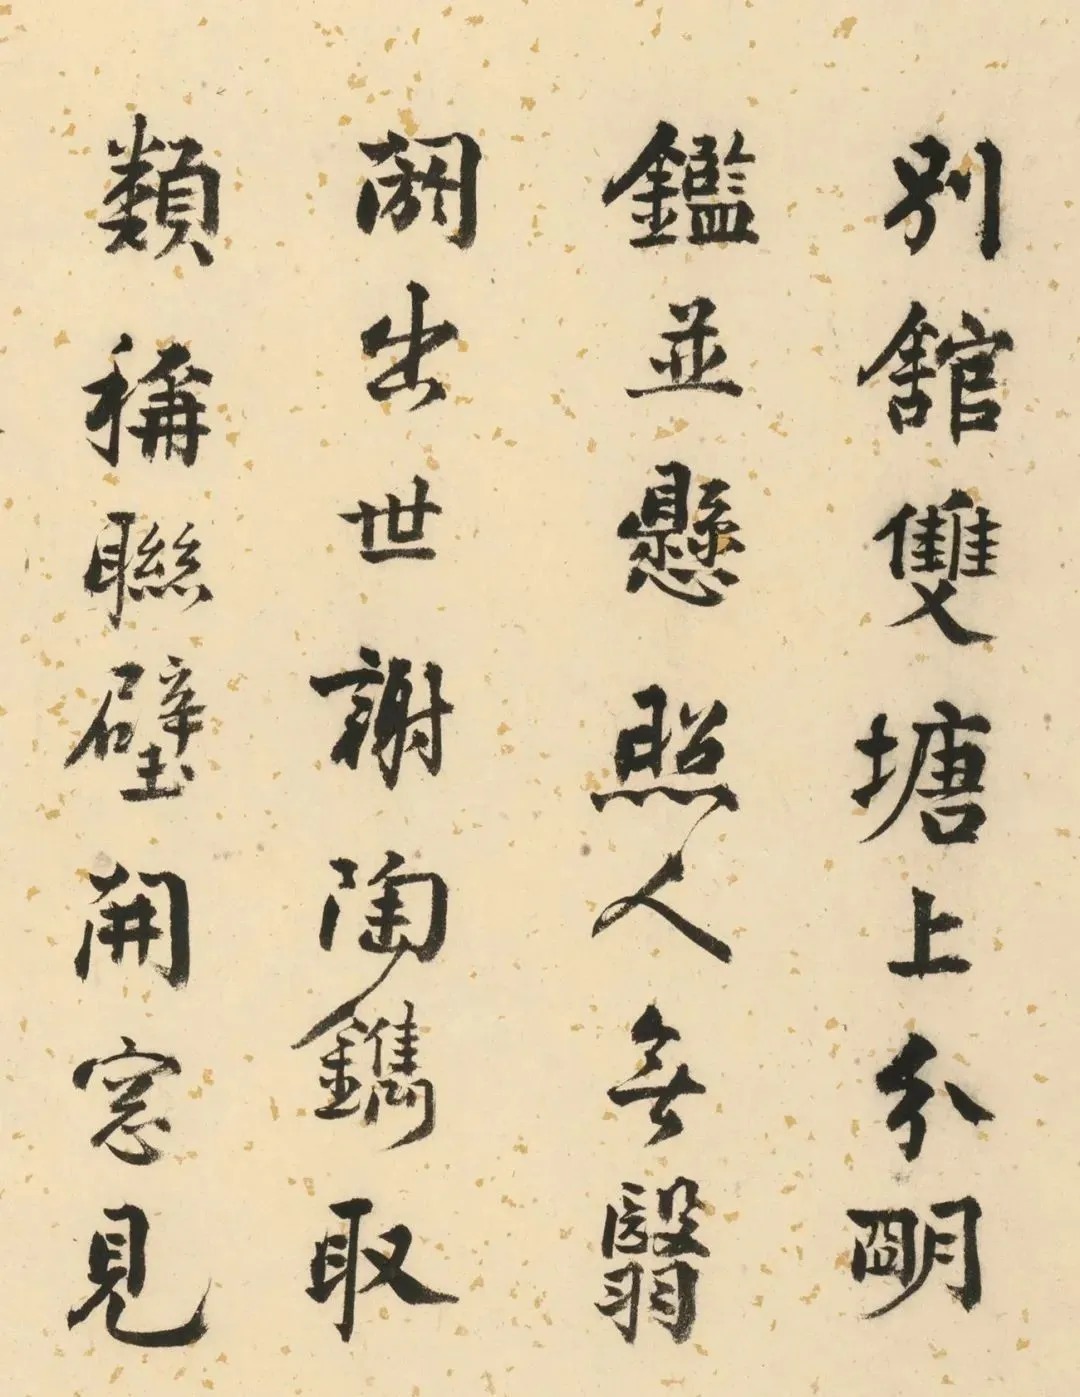 別舘雙塘上分朙
鑑並懸照人無翳
闕出世謝陶鐫取
類稱聯璧開窓見